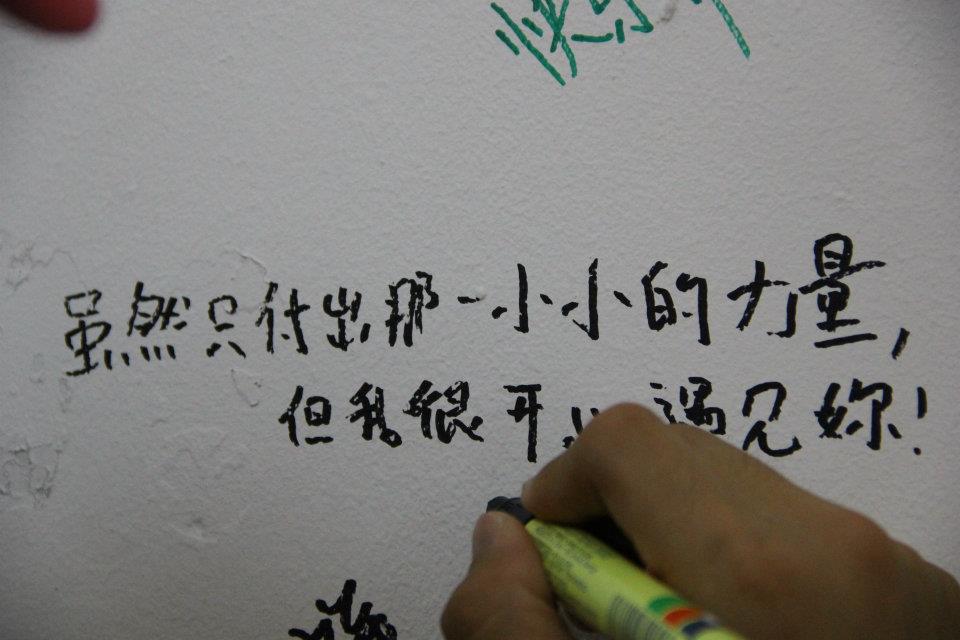 虽然只付出那一小小的力量,
但我很开心遇见妳!